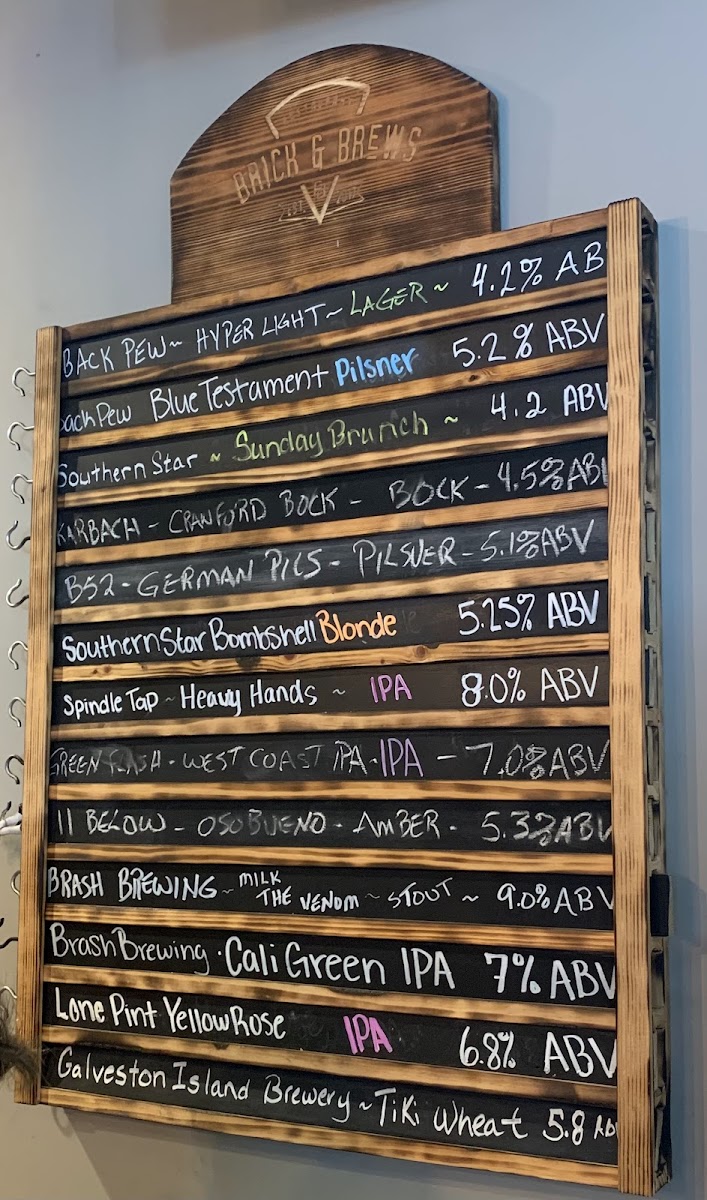 BRICK & BREWS
EST.
BACK PEW ~ HYPER LIGHT ~ LAGER ~ 4.2% AB
Back Pew Blue Testament Pilsner 5.2% ABV
Southern Star ~ Sunday Brunch ~ 4.2 ABV
KARBACH - CRANFORD BOCK - BOCK - 4.5% ABV
B52 - GERMAN PILS - PILSNER - 5.1% ABV
Southern Star Bombshell Blonde 5.25% ABV
Spindle Tap ~ Heavy Hands ~ IPA 8.0% ABV
GREEN FLASH - WEST COAST IPA - IPA - 7.0% ABV
11 BELOW - OSO BUENO - AMBER - 5.3% ABV
BRASH BREWING ~ MILK THE VENOM ~ STOUT ~ 9.0% ABV
Brash Brewing · Cali Green IPA 7% ABV
Lone Pint Yellow Rose IPA 6.8% ABV
Galveston Island Brewery ~ Tiki Wheat 5.8 AB